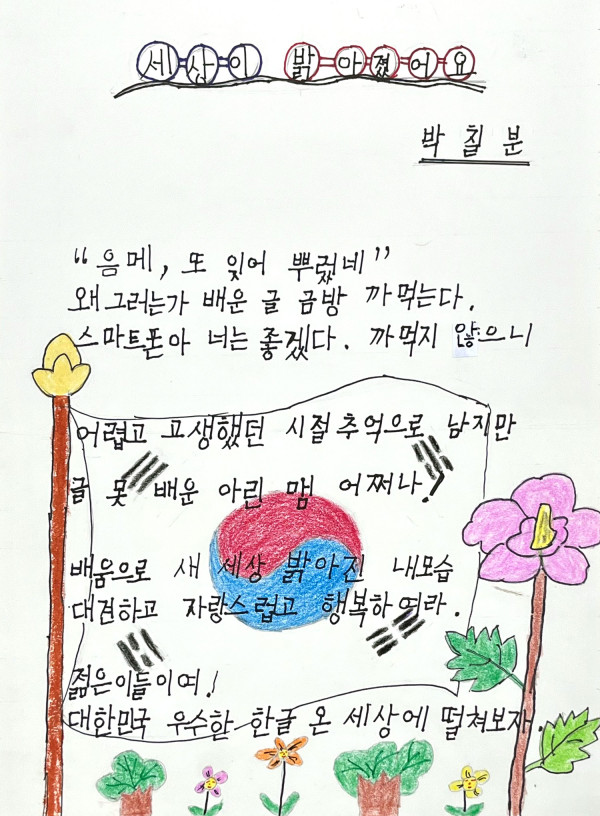 세상이 밝아졌어요
박칠분
“음메, 또 잊어 뿌렀네”
왜그러는가 배운 글 금방 까먹는다.
스마트폰아 너는 좋겠다. 까먹지 않으니
어렵고 고생했던 시절 추억으로 남지만
글 못 배운 아린 맴 어쩌나!
배움으로 새 세상 밝아진 내모습
대견하고 자랑스럽고 행복하여라.
젊은이들이여!
대한민국 우수한 한글 온 세상에 떨쳐보자.